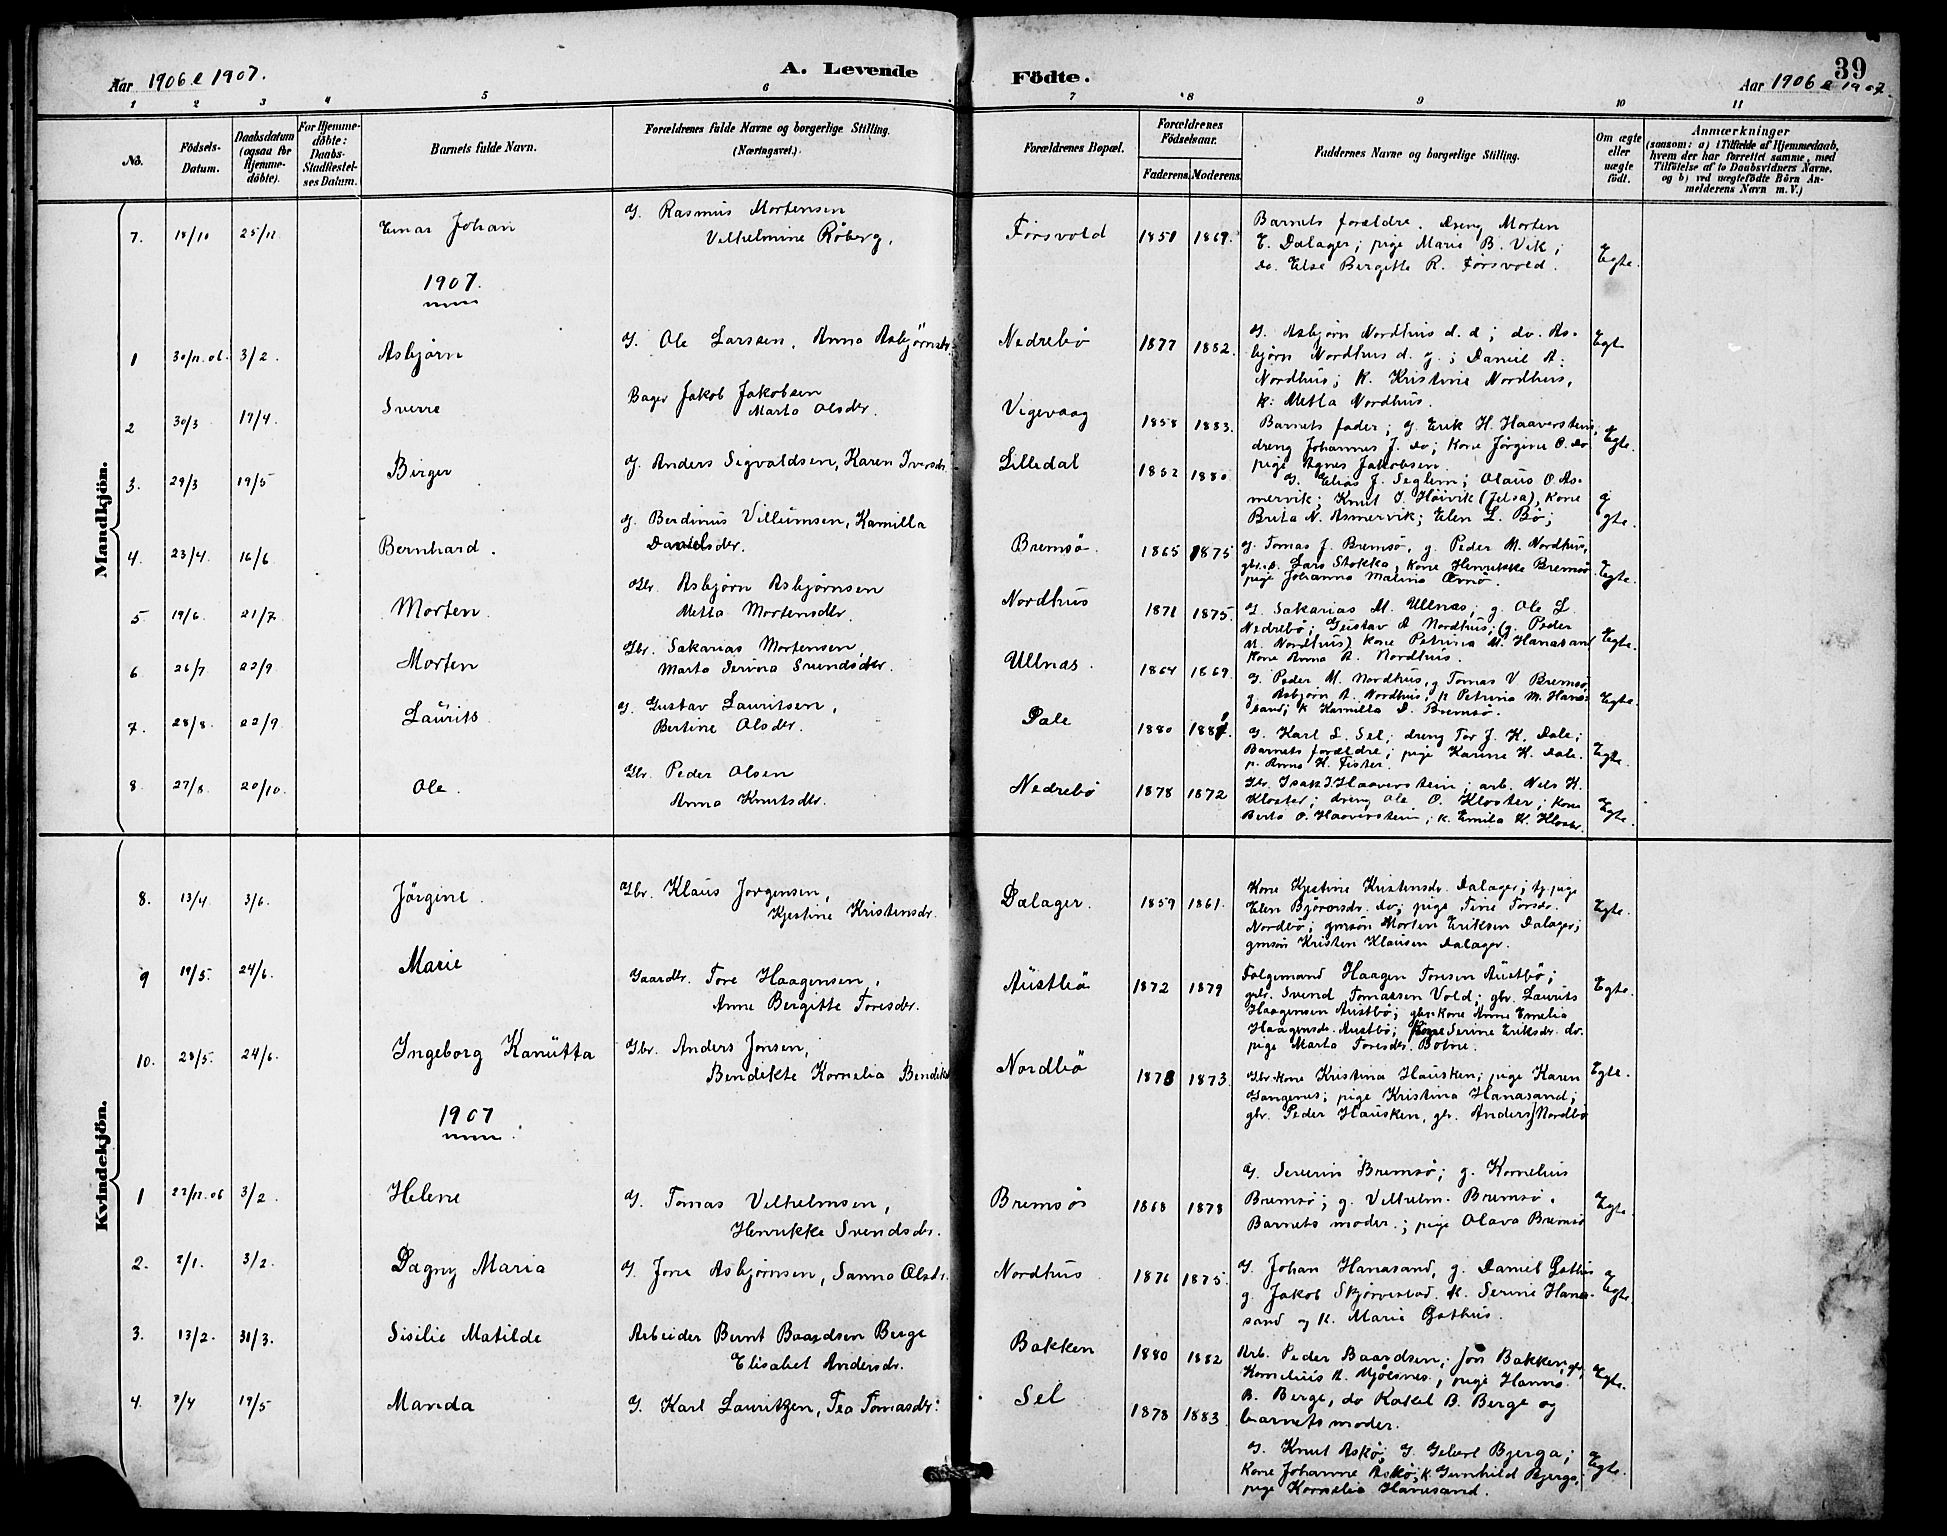 Aar 1906 & 1907.
A. Levende
Födte.
39
Aar 1906 & 1907.
1 2 3 4 5 6 7 8 9 10 11
No.
Födsels-
Datum.
Daabsdatum
(ogsaa for
Hjemme-
döbte).
For Hjemme-
döbte:
Daabs-
Stadfæstel-
ses Datum.
Barnets fulde Navn.
Forældrenes fulde Navne og borgerlige Stilling.
(Næringsvei.)
Forældrenes Bopæl.
Forældrenes
Födselsaar.
Faderens. Moderens.
Faddernes Navne og borgerlige Stilling.
Om ægte
eller
uægte
födt.
Anmærkninger
(saasom: a) i Tilfælde af Hjemmedaab,
hvem der har forrettet samme, med
Tilföielse af to Daabsvidners Navne,
og b) ved uægtefödte Börn An-
melderens Navn m. V.)
Mandkjön.
7. 18/10 25/11 Einar Johan
G. Rasmus Mortensen
Vilhelmine Röberg.
Førsvold 1851 1869.
Barnets forældre. Dreng Morten
E. Dalager; pige Marie B. Vik;
Do. Else Bergitte R. Førsvold.
Egte.
1907.
1 30/11.06. 3/2. Asbjørn
G. Ole Larssen, Anna Asbjørnsdr.
Nedrebø 1877 1882.
G. Asbjørn Nordhus d. æ; do. As-
bjørn Nordhus d. y.; Daniel A.
Nordhus; K. Kristine Nordhus,
K. Metta Nordhus.
Egte
2 30/3 17/4. Sverre
Bager Jakob Jakobsen
Marta Olsdr.
Vigevaag 1858 1883.
Barnets fader; g. Erik H. Haaverstein,
dreng Johannes J. do; Kone Jørgine O. do
pige Agnes Jakobsen.
Egte.
3. 29/3 19/5 Birger
G. Anders Sigvaldsen, Karen Iversdr.
Lilledal 1882 1880
G. Elias J. Seglem; Olaus O. As-
mervik; Knut I. Høivik (Jelsa), Kone
Brita N. Asmervik; Elen L. Bø;
Egte.
4. 23/4. 16/6 Bernhard.
G. Berdinus Villumsen, Kamilla
Danielsdr.
Bremsø. 1865 1875
G. Tomas J. Bremsø, g. Peder M. Nordhus,
gbr. Lars Stokka, Kone Henrikke Bremsø
pige Johanna Malina
Egte.
5 19/6. 21/7. Morten.
Gbr. Asbjørn Asbjørnsen
Metta Mortensdr.
Nordhus 1871 1875.
G. Sakarias M. Ullnæs; g. Ole L.
Nedrebø; Gustav D Nordhus; (g. Peder
M. Nordhus) Kone Petrina M. Hanasand
Kone Anna A. Nordhus.
Egte.
6 26/7 22/9. Morten
Gbr. Sakarias Mortensen,
Marta Serina Svendsdr.
Ullnæs. 1864 1869.
G. Peder M. Nordhus, g Tomas V Bremsø,
g. Asbjørn A. Nordhus; K Petrina M. Hana-
sand; K Kamilla D. Bremsø.
Egte.
7. 28/8. 22/9. Laurits
G. Gustav Lauritsen,
Bertine Olsdr.
Dale 1880 1881.
G. Karl L. Sel; dreng Tor J. K. Dale;
Barnets forældre; pige Karine K. Dale.
p. Anna K. Fister.
Egte.
8. 27/8. 20/10. Ole.
Gbr. Peder Olsen
Anna Knutsdr.
Nedrebø 1878 1872
Gbr. Isak J. Haaverstein; arb. Nels K.
Kloster; dreng Ole O. Kloster; Kone
Berta O. Haaverstein; K. Emila K. Kloster.
Egte.
Kvindekjön.
8. 13/4 3/6. Jörgine.
Gbr. Klaus Jørgensen,
Kjestine Kristensdr.
Dalager. 1859 1861.
Kone Kjestine Kristensdr. Dalager; tj. pige
Elen Bjørorsdr. do; pige Tine Torsdr.
Nordbø; gmsön Morten Eriksen Dalager;
gmsön Kristen Klausen Dalager.
Egte.
9 19/5. 24/6. Marie
Gaardbr. Tore Haagensen,
Anne Bergitte Toresdr.
Austbø 1872 1879
Folgemand Haagen Toresen Austbø;
gbr. Svend Tomassen Vold; gbr. Laurits
Haagensen Austbø; gbr. Kone Anne Emelia
Haagensdr. Austbø; Kone Serine Eriksdr. do.
pige Marta Toresdr. Botne.
Egte.
10. 28/5. 24/6. Ingeborg Kanutta
Gbr. Anders Jonsen,
Bendikte Kornelia Bendiks
Nordbø 1873 1873.
Gbr. Kone Kristina Hausken; pige Karen
Gangenes; pige Kristina Hanasand;
gbr. Peder Hausken, gbr. Anders Nordbø
Egte.
1907
1 22/11.06 3/2. Helene
G. Tomas Vilhelmsen,
Henrikke Svendsdr.
Bremsø 1868 1878
G. Severin Bremsø; g. Kornelius
Bremsø; g. Vilhelm. Bremsø.
Barnets moder.; pige Olava Bremsø
Egte.
2. 2/1. 3/2. Dagny Maria
G. Jone Asbjørnsen, Sanna Olsdr.
Nordhus 1876 1875.
G. Johan Hanasand, g. Daniel Østhus
g. Jakob Skjørvestad. K. Serine Hana-
sand og K. Marie Østhus.
Egte.
3. 13/2. 31/3. Sisilie Matilde
Arbeider Bernt Baardsen Berge
Elisabet Andersdr.
Bakken 1880 1882
Arb. Peder Baardsen; Jon Bakken, gbr.
Kornelius A. Mjølsnes, pige Hanna
B. Berge, do Rakel B. Berge og
barnets moder.
Egte.
4. 2/4 19/5 Manda
G. Karl Lauritzen, Tea Tomasdr.
Sel 1878 1883.
G. Knut Askø; G. Gebert Bjerga;
Kone Johanne Askø; K. Gunhild Bjerga,
pige Kornelia Hanasand.
Egte.